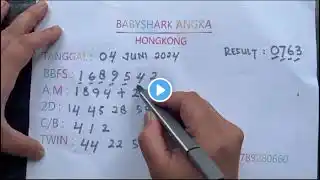 BABYSHARK ANGKA
HONGKONG
TANGGAL : 04 JUNI 2024
RESULT : 0763
BBFS : 1689542
AM : 1894 +
2D : 14 45 28
C/B : 4 1 2
TWIN : 44 22